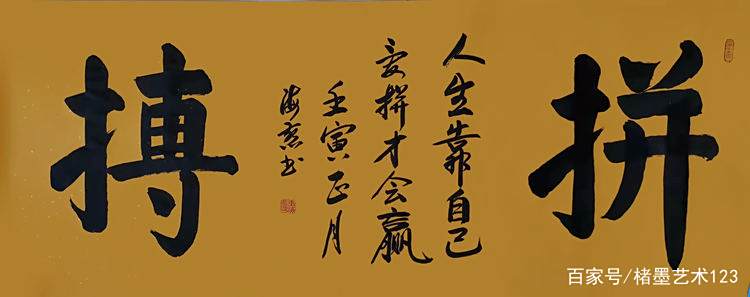 拼
人生靠自己
爱拼才会赢
壬寅正月
海书
搏
百家号/楮墨艺术123